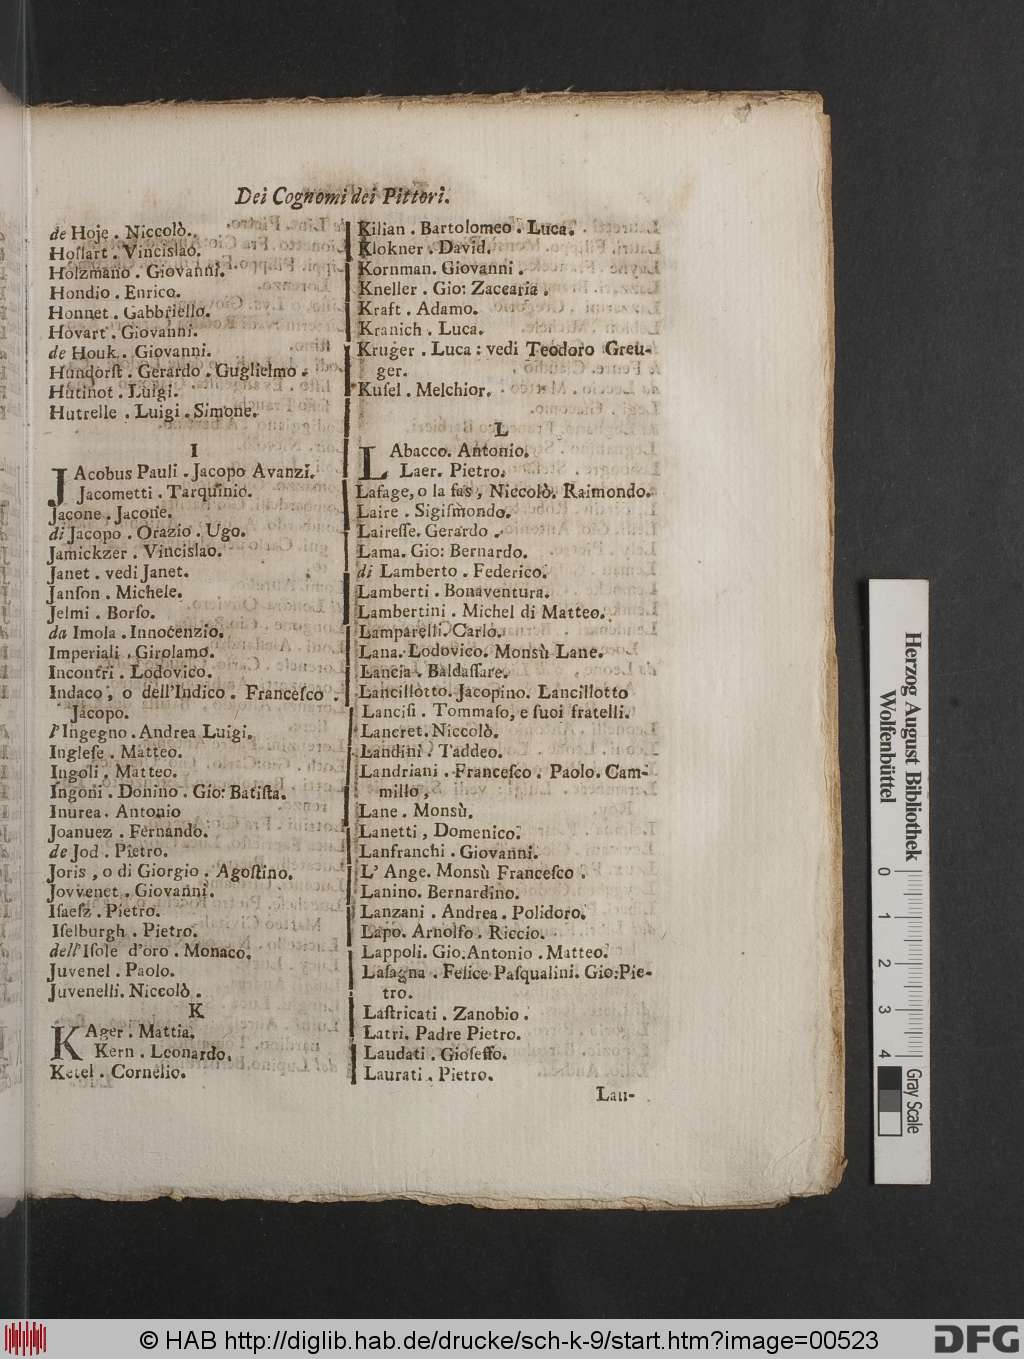 Dei Cognomi dei Pittori.
de Hoje . Niccolò.
Hoſſart . Vincislao.
Holzmano . Giovanni.
Hondio . Enrico.
Honnet . Gabbriello.
Hovart . Giovanni.
de Houk . Giovanni.
Hundorſt . Gerardo . Guglielmo .
Hutinot . Luigi.
Hutrelle . Luigi . Simone.
I
JAcobus Pauli . Jacopo Avanzi.
Jacometti . Tarquinio.
Jacone . Jacone.
di Jacopo . Orazio . Ugo.
Jamickzer . Vincislao.
Janet . vedi Janet.
Janſon . Michele.
Jelmi . Borſo.
da Imola . Innocenzio.
Imperiali . Girolamo.
Incontri . Lodovico.
Indaco , o dell'Indico . Franceſco .
Jacopo.
l'Ingegno . Andrea Luigi.
Ingleſe . Matteo.
Ingoli . Matteo.
Ingoni . Donino . Gio: Batiſta.
Inurea . Antonio
Joanuez . Fernando.
de Jod . Pietro.
Joris , o di Giorgio . Agoſtino.
Jovvenet . Giovanni.
Iſaeſz . Pietro.
Iſelburgh . Pietro.
dell'Iſole d'oro . Monaco.
Juvenel . Paolo.
Juvenelli. Niccolò .
K
KAger . Mattia.
Kern . Leonardo.
Ketel . Cornelio.
Kilian . Bartolomeo . Luca.
Klokner . David.
Kornman. Giovanni .
Kneller . Gio: Zaccaria .
Kraft . Adamo.
Kranich . Luca.
Kruger . Luca : vedi Teodoro Greu-
ger.
Kuſel . Melchior.
L
LAbacco. Antonio.
Laer. Pietro.
Lafage, o la fas , Niccolò. Raimondo.
Laire . Sigiſmondo.
Laireſſe. Gerardo .
Lama. Gio: Bernardo.
di Lamberto . Federico.
Lamberti . Bonaventura.
Lambertini . Michel di Matteo.
Lamparelli. Carlo.
Lana. Lodovico. Monsù Lane.
Lancia . Baldaſſare.
Lancillotto. Jacopino. Lancillotto
Lanciſi . Tommaſo, e ſuoi fratelli.
Lancret. Niccolò.
Landini . Taddeo.
Landriani . Franceſco . Paolo. Cam-
millo ,
Lane . Monsù.
Lanetti , Domenico.
Lanfranchi . Giovanni.
L' Ange. Monsù Franceſco .
Lanino. Bernardino.
Lanzani . Andrea . Polidoro.
Lapo. Arnolfo . Riccio.
Lappoli. Gio: Antonio . Matteo.
Laſagna . Felice Paſqualini. Gio: Pie-
tro.
Laſtricati . Zanobio .
Latri. Padre Pietro.
Laudati . Gioſeffo.
Laurati . Pietro.
Lau-
Herzog August Bibliothek
Wolfenbüttel
0
1
2
3
4
Gray Scale
© HAB http://diglib.hab.de/drucke/sch-k-9/start.htm?image=00523
DFG